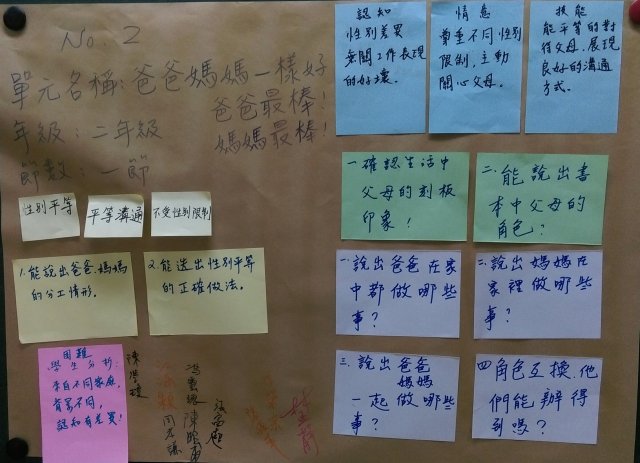 No. 2
單元名稱:爸爸媽媽一樣好
爸爸最棒!
年級:二年級
媽媽最棒!
節數:一節
性別平等
平等溝通
不受性別限制
1.能說出爸爸、媽媽
的分工情形。
2.能選出性別平等
的正確做法。
困難
學生分析:
來自不同家庭,
背景不同,
認知有差異!
認知
性別差異
無關工作表現
的好壞。
情意
尊重不同性別
限制,主動
關心父母。
技能
能平等的對
待父母,展現
良好的溝通
方式。
一確認生活中
父母的刻板
印象!
二.能說出書
本中父母的
角色?
一.說出爸爸在家
中都做哪些
事?
二.說出媽媽在
家裡做哪些
事?
三.說出爸爸
媽媽
一起做哪些
事?
四角色互換.他
們能辦得
到嗎?